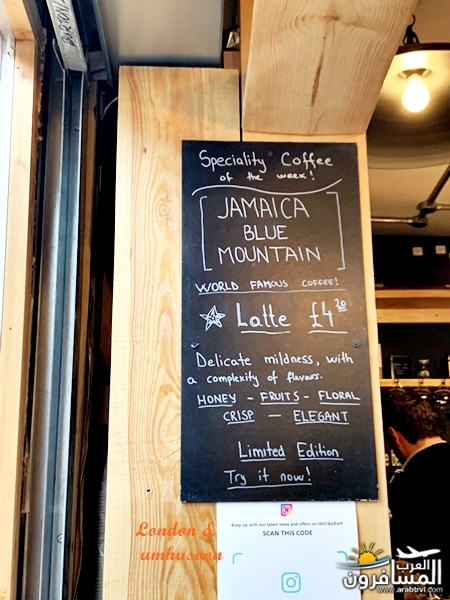 Speciality Coffee
of the week!
JAMAICA
BLUE
MOUNTAIN
WORLD FAMOUS COFFEE!
Latte £4.20
Delicate mildness, with
a complexity of flavours.
HONEY - FRUITS - FLORAL
CRISP — ELEGANT
Limited Edition
Try it now!
Keep up with our latest news and offers on INSTAGRAM
SCAN THIS CODE
London &
umhusaen
العرب
المسافرون
www.arabtrvl.com